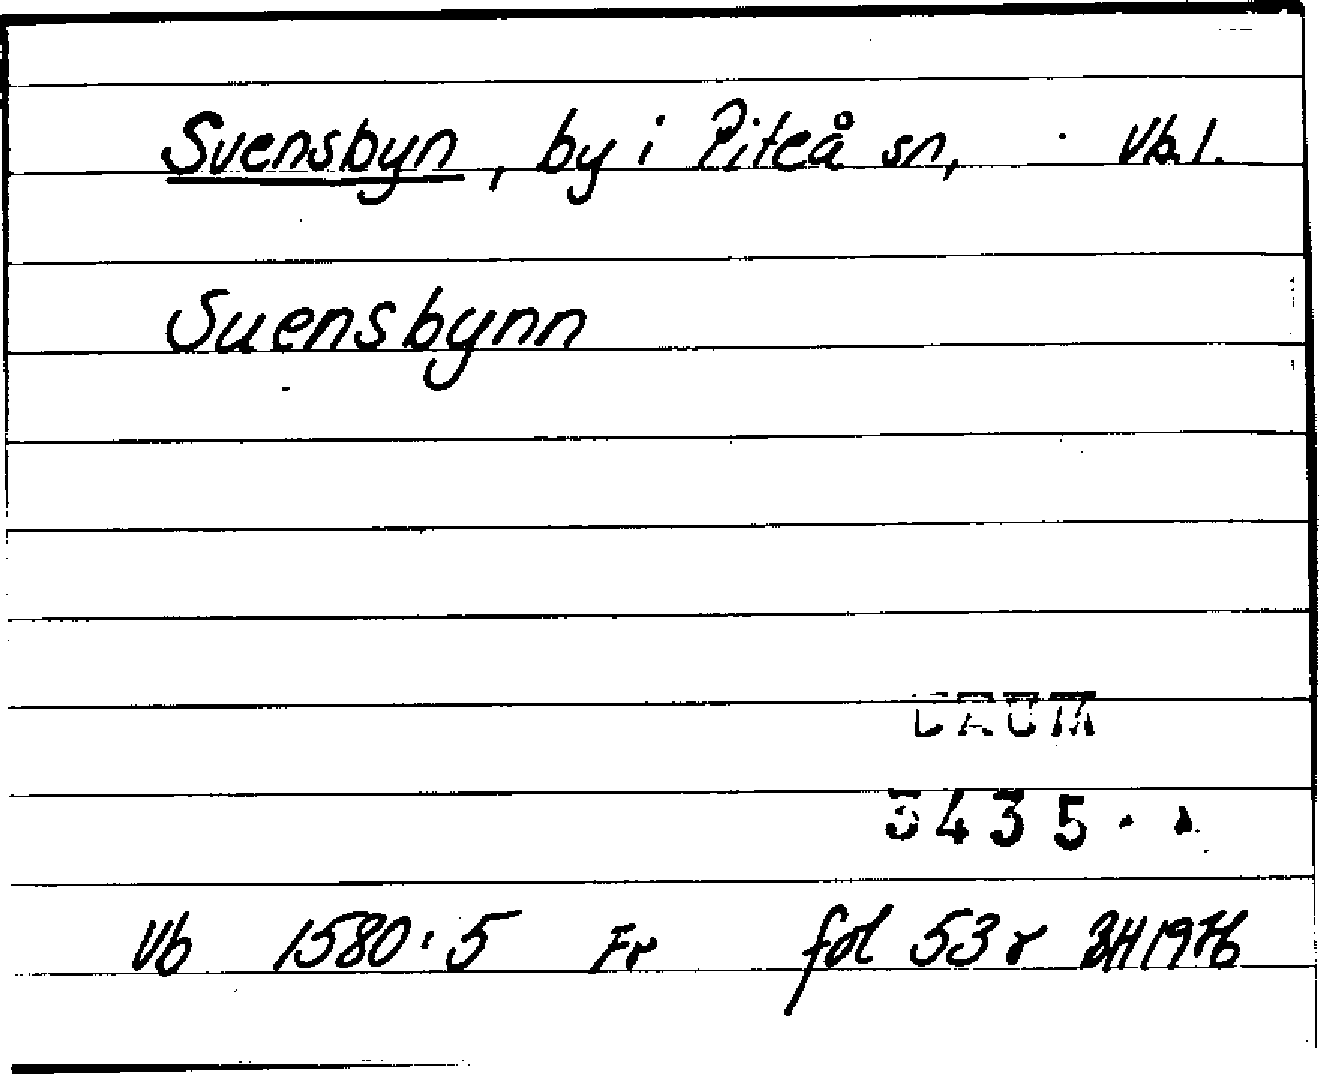 Svensbyn, by i Piteå sn, Vb. l.
Suensbynn
DAUM
3435
Vb 1580:5 Fr fol 53 r BH 1976